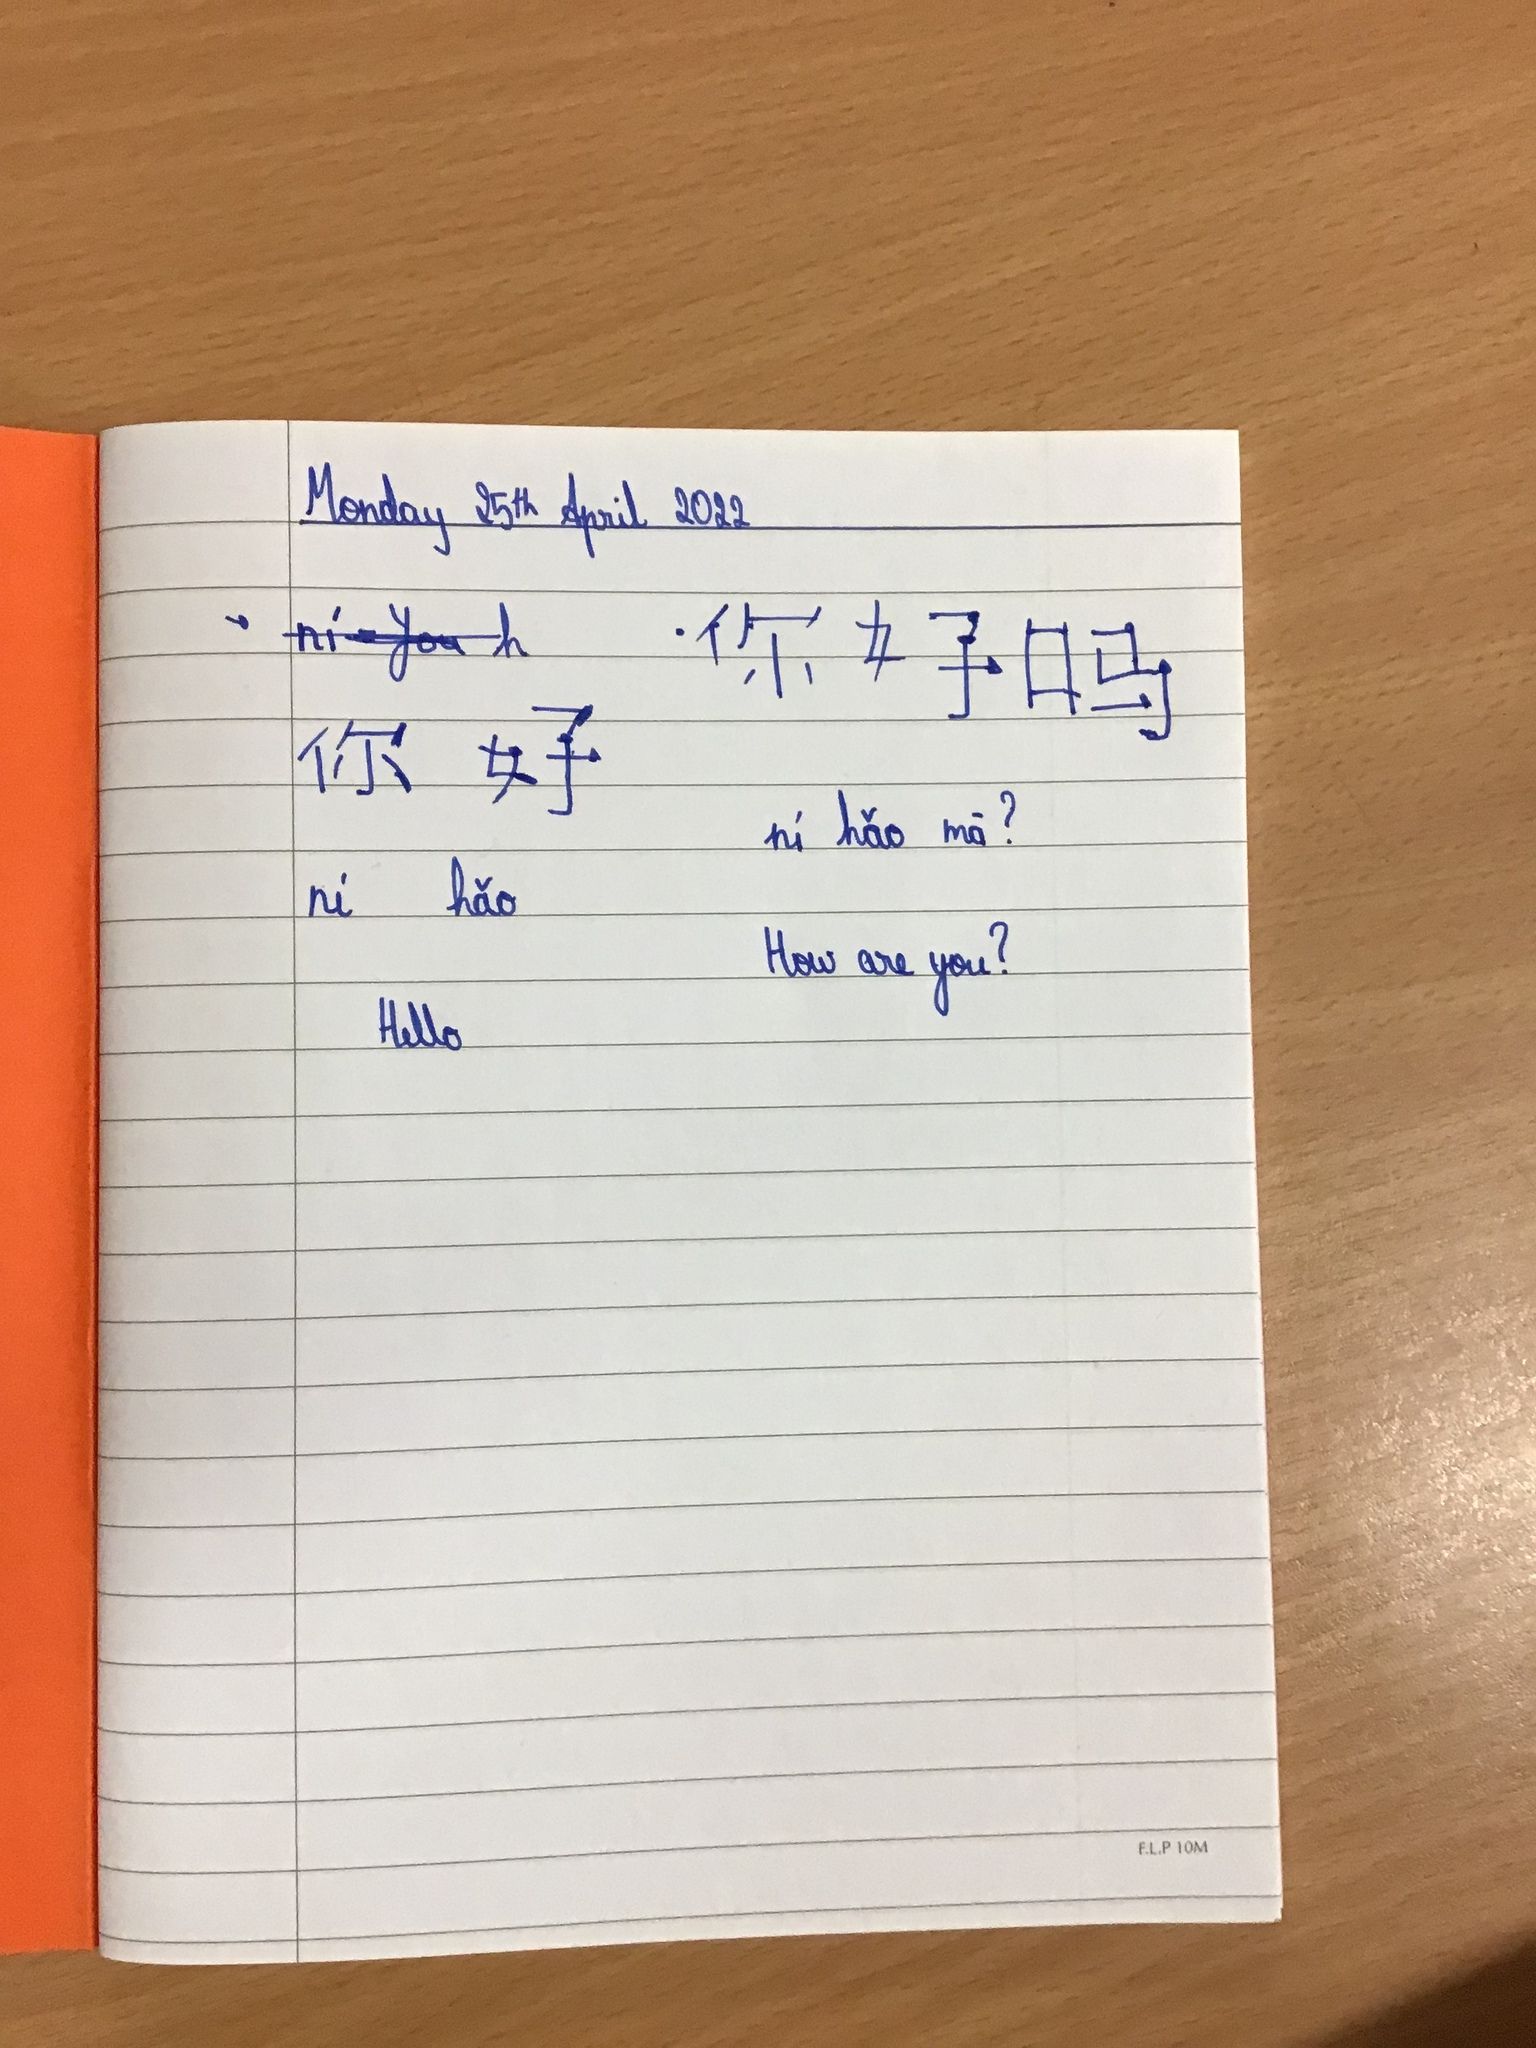 Monday 25th April 2022
ní - you h
你 好
ní hǎo
Hello
你好吗
ní hǎo mā?
How are you?
F.L.P 10M